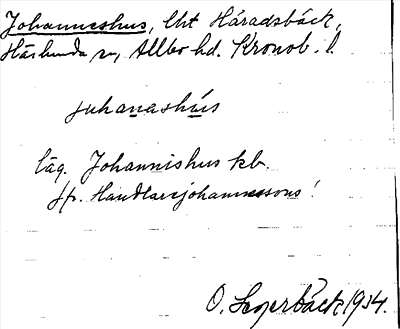 Johanneshus, lht Häradsbäck,
Härlunda sn, Allbo hd. Kronob. l.
juhanashús
läg. Johannishus kb.
jfr. Handlarejohannessons!
O. Segerbäck 1934.